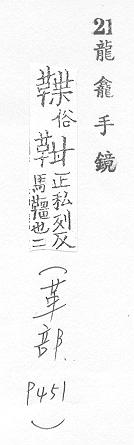 21 龍龕手鏡
鞢俗靾正私列反
馬韁也二
(革部.
P451)